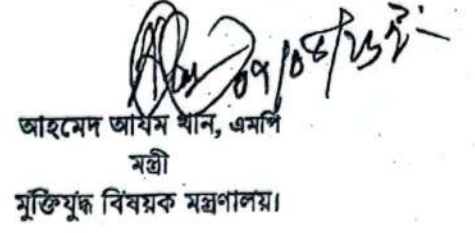 আহমেদ আযম খান, এমপি
মন্ত্রী
মুক্তিযুদ্ধ বিষয়ক মন্ত্রণালয়।